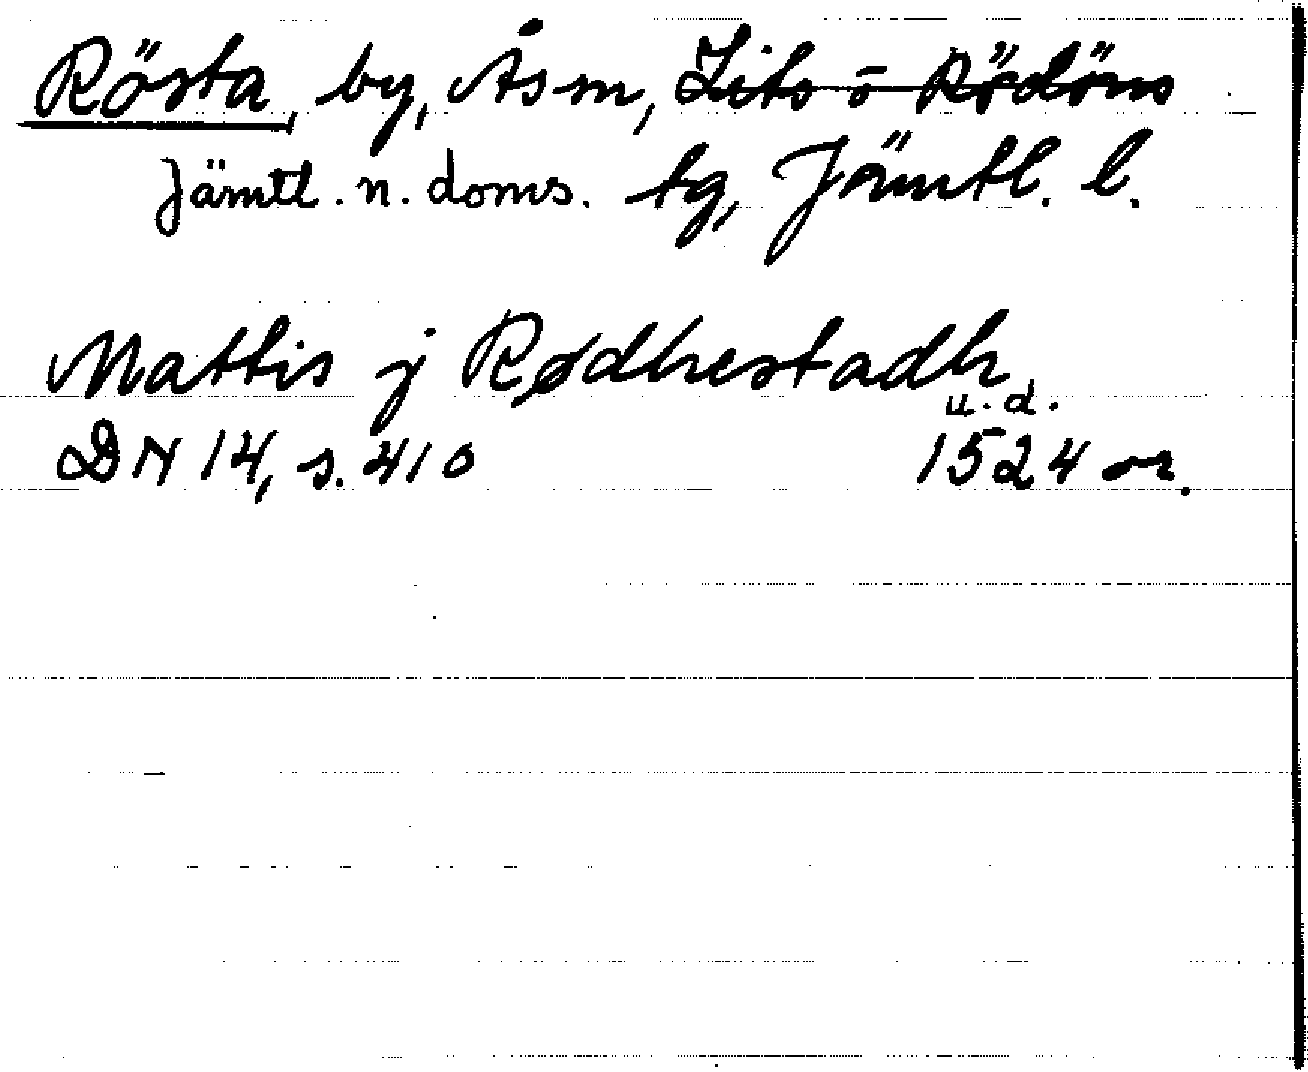 Rösta, by, Ås sn, Lits o Rödöns
Jämtl. n. doms. tg, Jämtl. l.
Mattis j Rødhestadh
u. d.
DN 14, s. 410 1524 or.